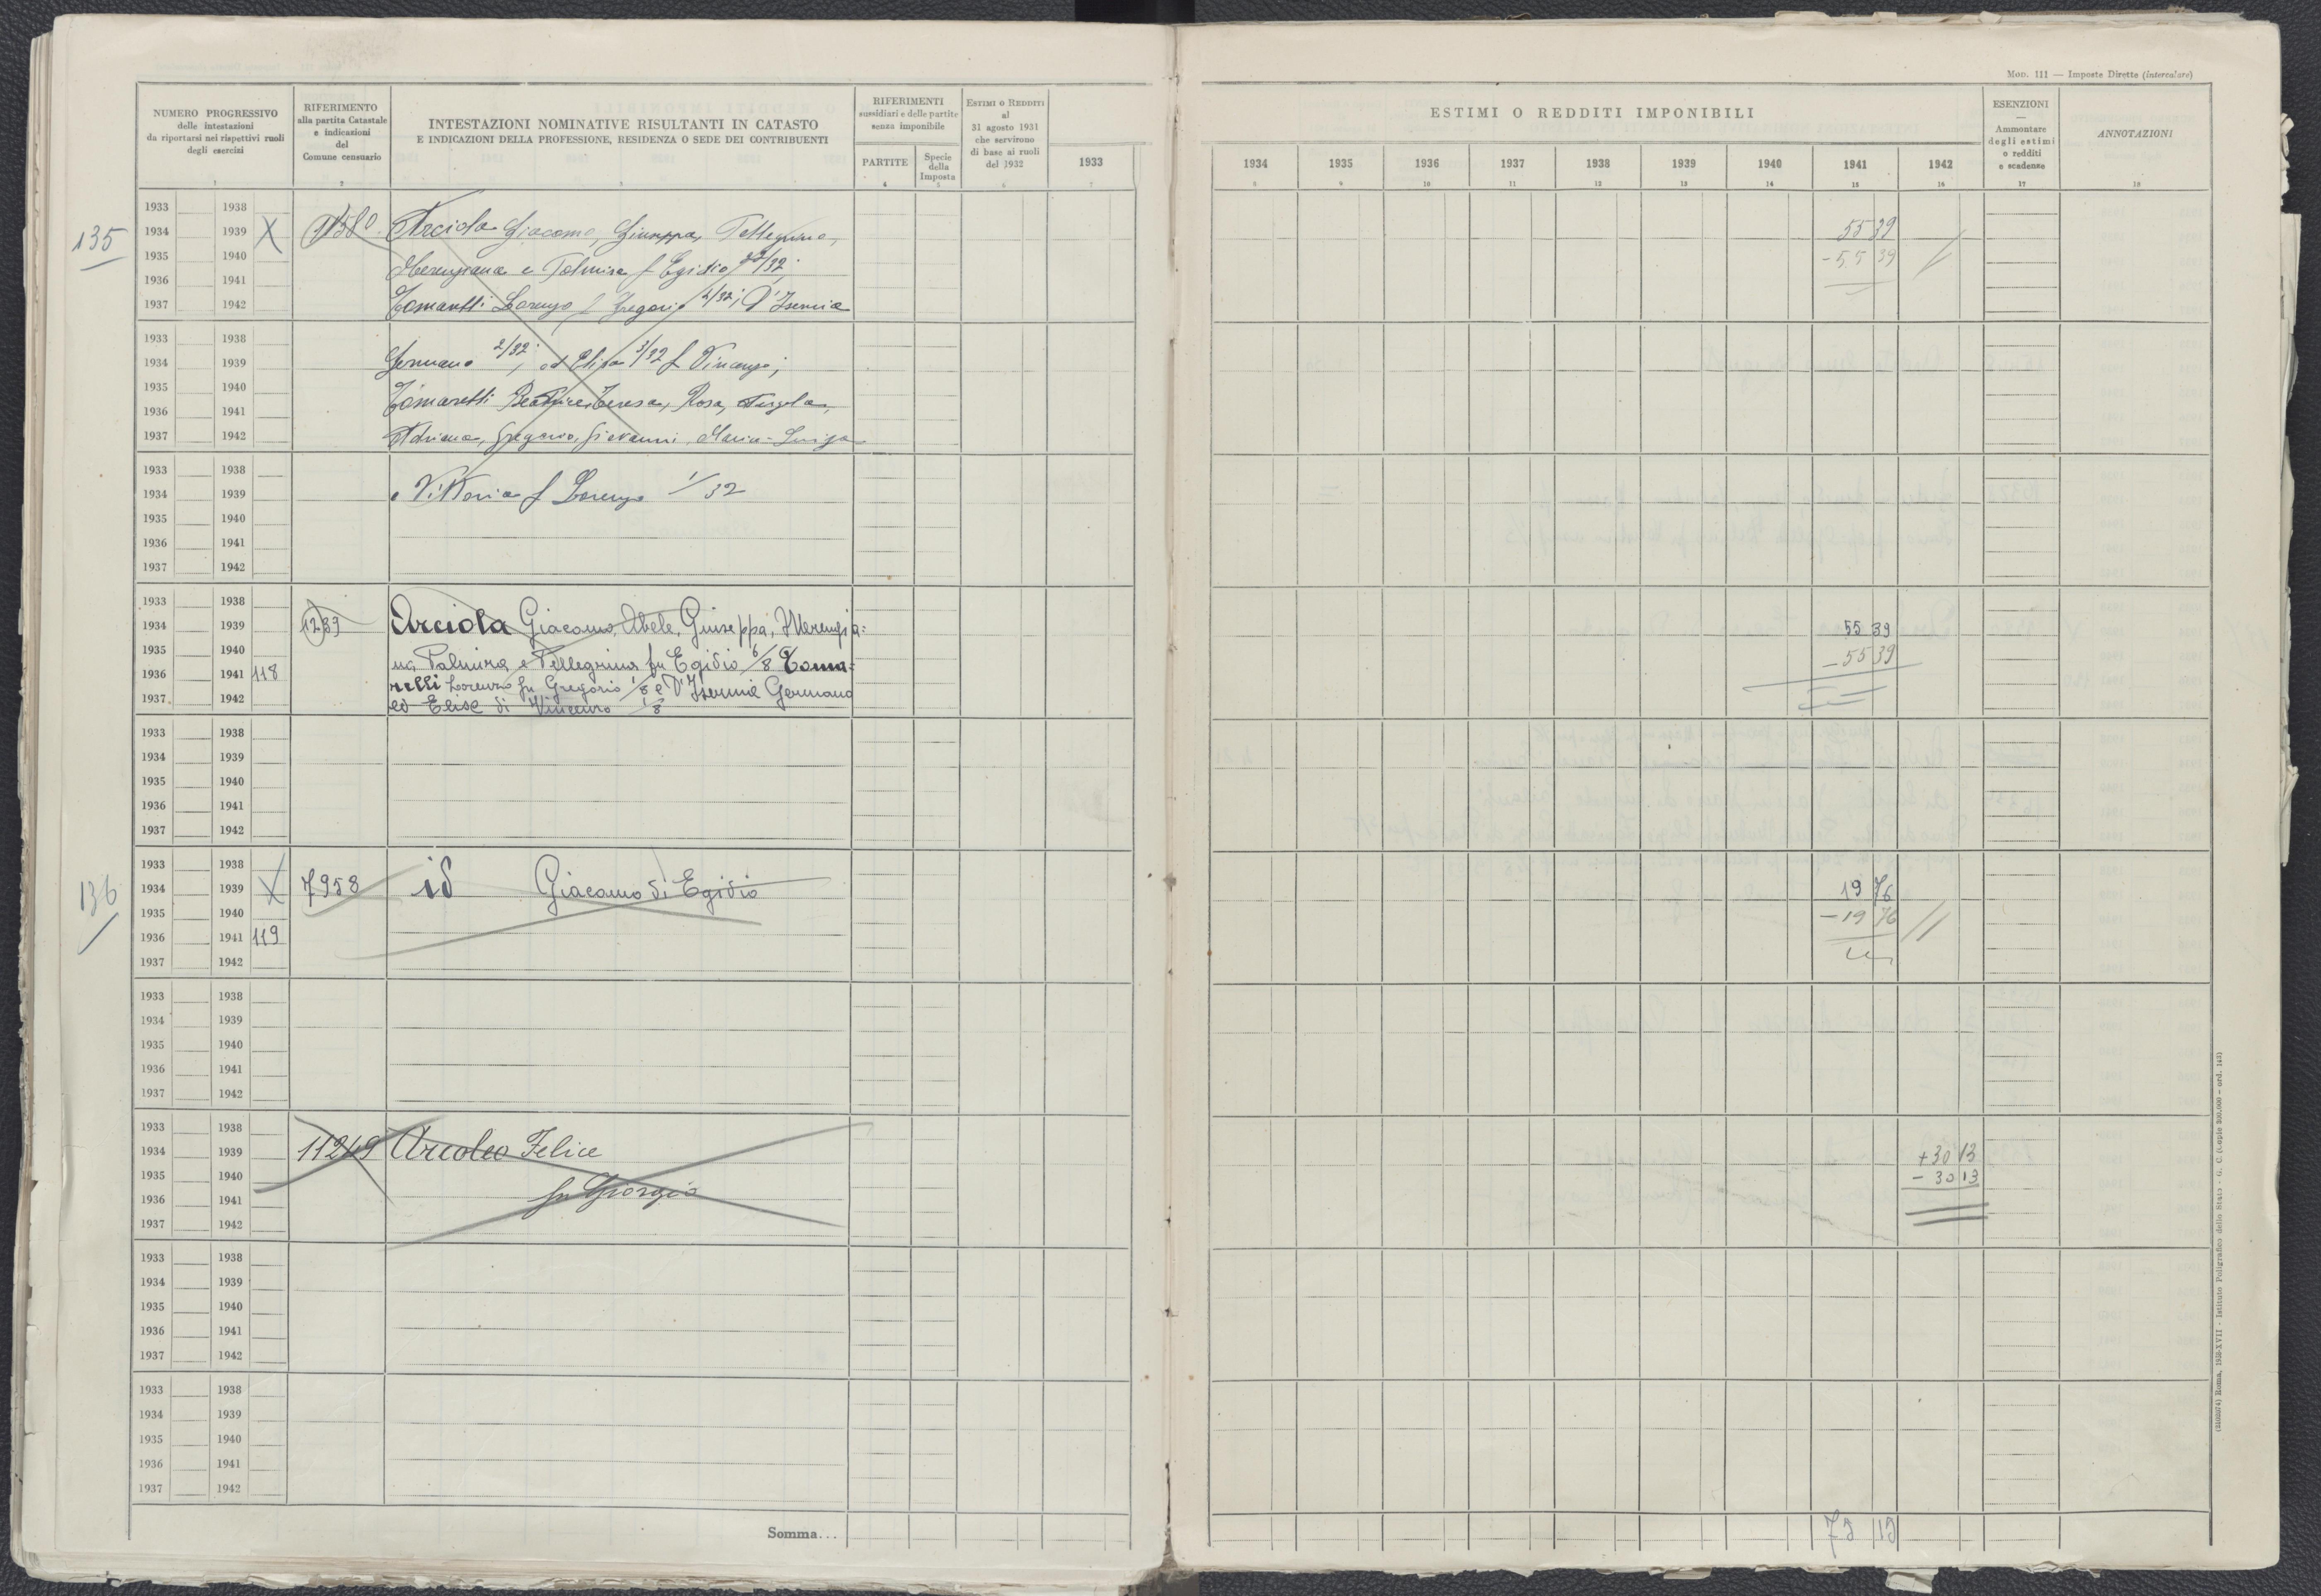 MOD. 111 — Imposte Dirette (intercalare)
NUMERO PROGRESSIVO
delle intestazioni
da riportarsi nei rispettivi ruoli
degli esercizi
1
RIFERIMENTO
alla partita Catastale
e indicazioni
del
Comune censuario
2
INTESTAZIONI NOMINATIVE RISULTANTI IN CATASTO
E INDICAZIONI DELLA PROFESSIONE, RESIDENZA O SEDE DEI CONTRIBUENTI
3
RIFERIMENTI
sussidiari e delle partite
senza imponibile
PARTITE
4
Specie
della
Imposta
5
ESTIMI O REDDITI
al
31 agosto 1931
che servirono
di base ai ruoli
del 1932
6
1933
7
ESTIMI O REDDITI IMPONIBILI
1934 1935 1936 1937 1938 1939 1940 1941 1942
8 9 10 11 12 13 14 15 16
ESENZIONI
—
Ammontare
degli estimi
o redditi
e scadenze
17
ANNOTAZIONI
18
1933 1938
135 1934 1939 X Arciola Giacomo, Giuseppa, Pellegrina, 55 39
1935 1940 Merengiana e Palmira f Egidio /32; - 55 39
1936 1941
1937 1942 Lorenzo f Gregorio 4/32; D'Isernia
1933 1938
1934 1939 Germano 2/32; ed Elisa 3/32 f Vincenzo;
1935 1940
1936 1941 Tomarelli Beatrice, Teresa, Rosa,
1937 1942 Adriana, Gregorio, Giovanni, Maria-Luisa
1933 1938
1934 1939 e Vittoria f Lorenzo 1/32
1935 1940
1936 1941
1937 1942
1933 1938
1934 1939 1233 Arciola Giacomo, Abele, Giuseppa, Merengia: 55 39
1935 1940 na Palmira e Pellegrina fu Egidio 6/8 Toma= - 55 39
1936 1941 118 relli Lorenzo fu Gregorio 1/8 e D'Isernia Germano
1937 1942 ed Elisa di Vincenzo 1/8
1933 1938
1934 1939
1935 1940
1936 1941
1937 1942
1933 1938
136 1934 1939 X 7958 id Giacomo di Egidio 19 76
1935 1940 - 19 76
1936 1941 119
1937 1942
1933 1938
1934 1939
1935 1940
1936 1941
1937 1942
1933 1938
1934 1939 11249 Arcoleo Felice + 30 13
1935 1940 - 30 13
1936 1941 fu Giorgio
1937 1942
1933 1938
1934 1939
1935 1940
1936 1941
1937 1942
1933 1938
1934 1939
1935 1940
1936 1941
1937 1942
Somma... 75 15